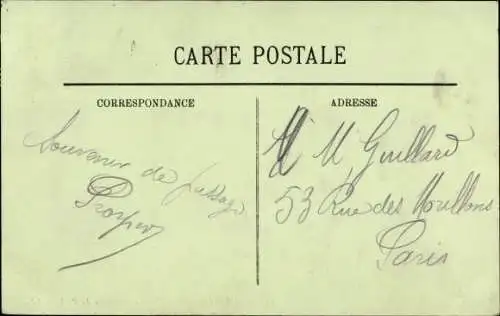 CARTE POSTALE
CORRESPONDANCE
ADRESSE
Souvenir de passage
Prosper
M. Guillard
53 Rue des Morillons
Paris